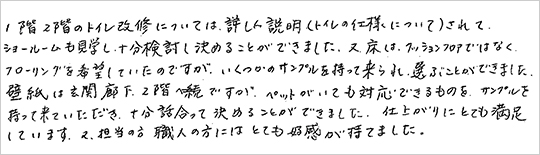 1階2階のトイレ改修については、詳しく説明(トイレの仕様について)されて、
ショールームも見学し、十分検討し決めることができました。又、床は、クッションフロアではなく、
フローリングを希望していたのですが、いくつかのサンプルを持って来られ、選ぶことができました。
壁紙は玄関廊下、2階へ続ですが、ペットがいても対応できるものを、サンプルを
持って来ていただき、十分話合って決めることができました。仕上がりにとても満足
しています。又、担当の方 職人の方にはとても好感が持てました。